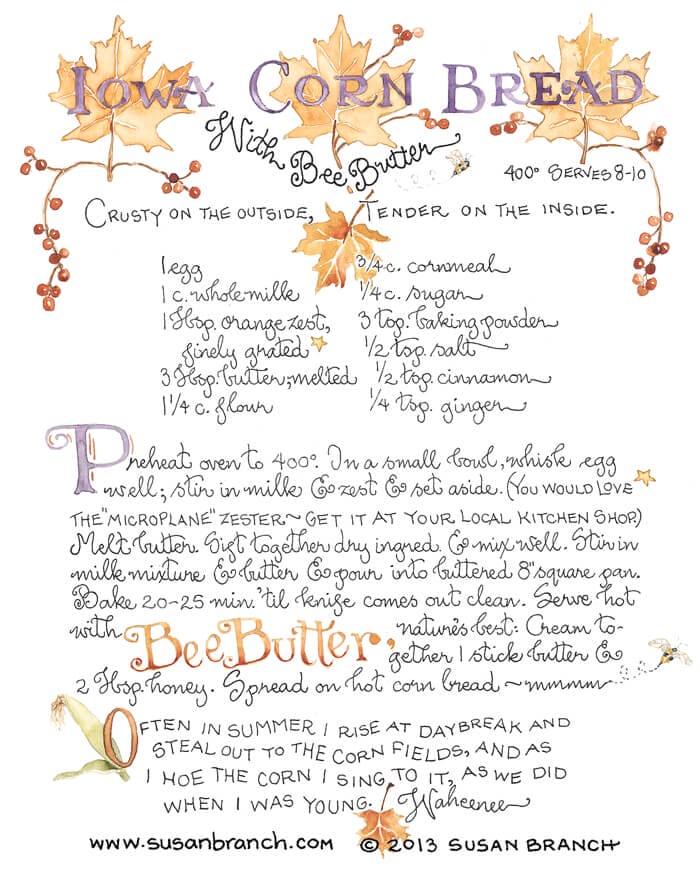 Iowa Corn Bread
With Bee Butter
400° Serves 8-10
Crusty on the outside, Tender on the inside.
1 egg
1 c. whole milk
1 Tbsp. orange zest,
finely grated
3 Tbsp. butter; melted
1 1/4 c. flour
3/4 c. cornmeal
1/4 c. sugar
3 tsp. baking powder
1/2 tsp. salt
1/2 tsp. cinnamon
1/4 tsp. ginger
Preheat oven to 400°. In a small bowl, whisk egg
well; stir in milk & zest & set aside. (You would love
the "Microplane" zester ~ get it at your local kitchen shop.)
Melt butter. Sift together dry ingred. & mix well. Stir in
milk mixture & butter & pour into buttered 8" square pan.
Bake 20-25 min. 'til knife comes out clean. Serve hot
with Bee Butter, nature's best: Cream to-
gether 1 stick butter &
2 Tbsp. honey. Spread on hot corn bread ~ mmmm
Often in summer I rise at daybreak and
steal out to the corn fields, and as
I hoe the corn I sing to it, as we did
when I was young. Waheenee
www.susanbranch.com © 2013 Susan Branch